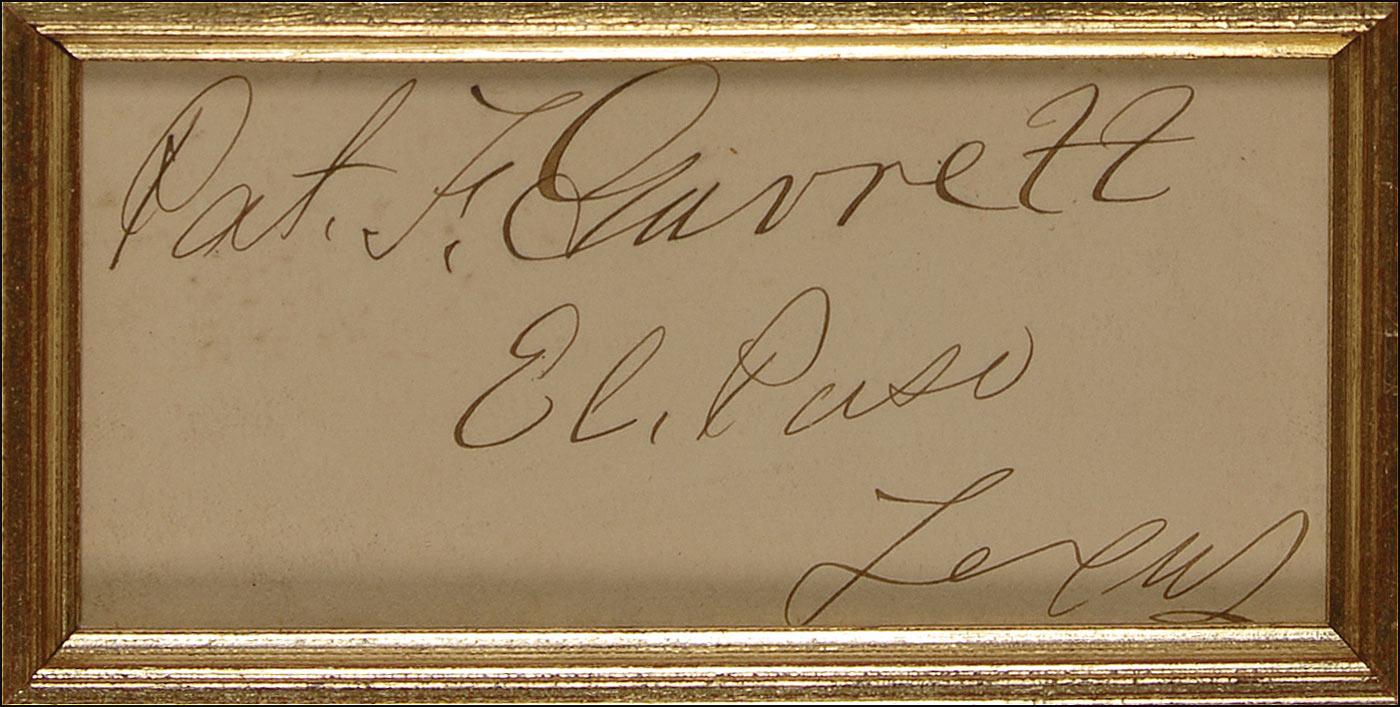 Pat. F. Garrett
El, Paso
Texas